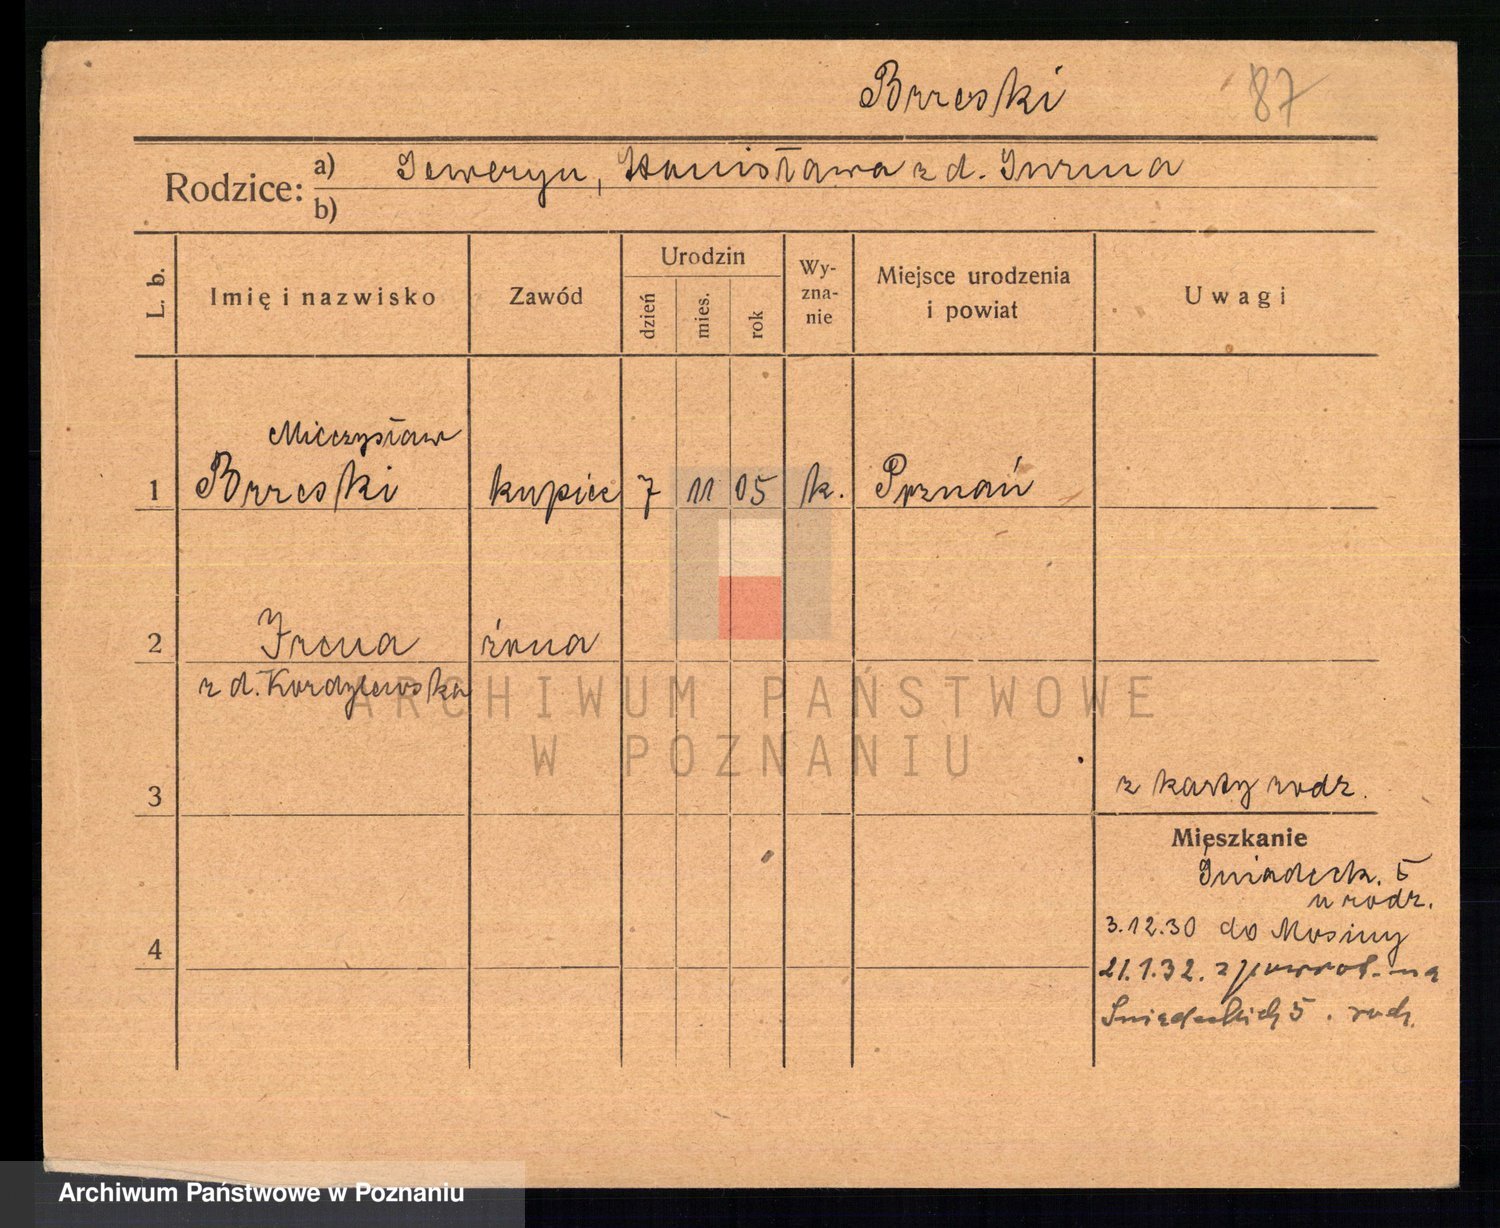 Brzeski 87
Rodzice: a) Seweryn, Stanisława z d.
b)
L. b.
Imię i nazwisko
Zawód
Urodzin
dzień
mies.
rok
Wy-
zna-
nie
Miejsce urodzenia
i powiat
Uwagi
Mieczysław
1 Brzeski kupiec 7 11 05 k. Poznań
2 Irena żona
z d. Kordylewska
ARCHIWUM PAŃSTWOWE
W POZNANIU
3 z karty rodz.
Mieszkanie
Śniadeck. 5
u rodz.
3.12.30 do Mosiny
4
21.1.32. z powrot. na
Śniadeckich 5. rodz.
Archiwum Państwowe w Poznaniu